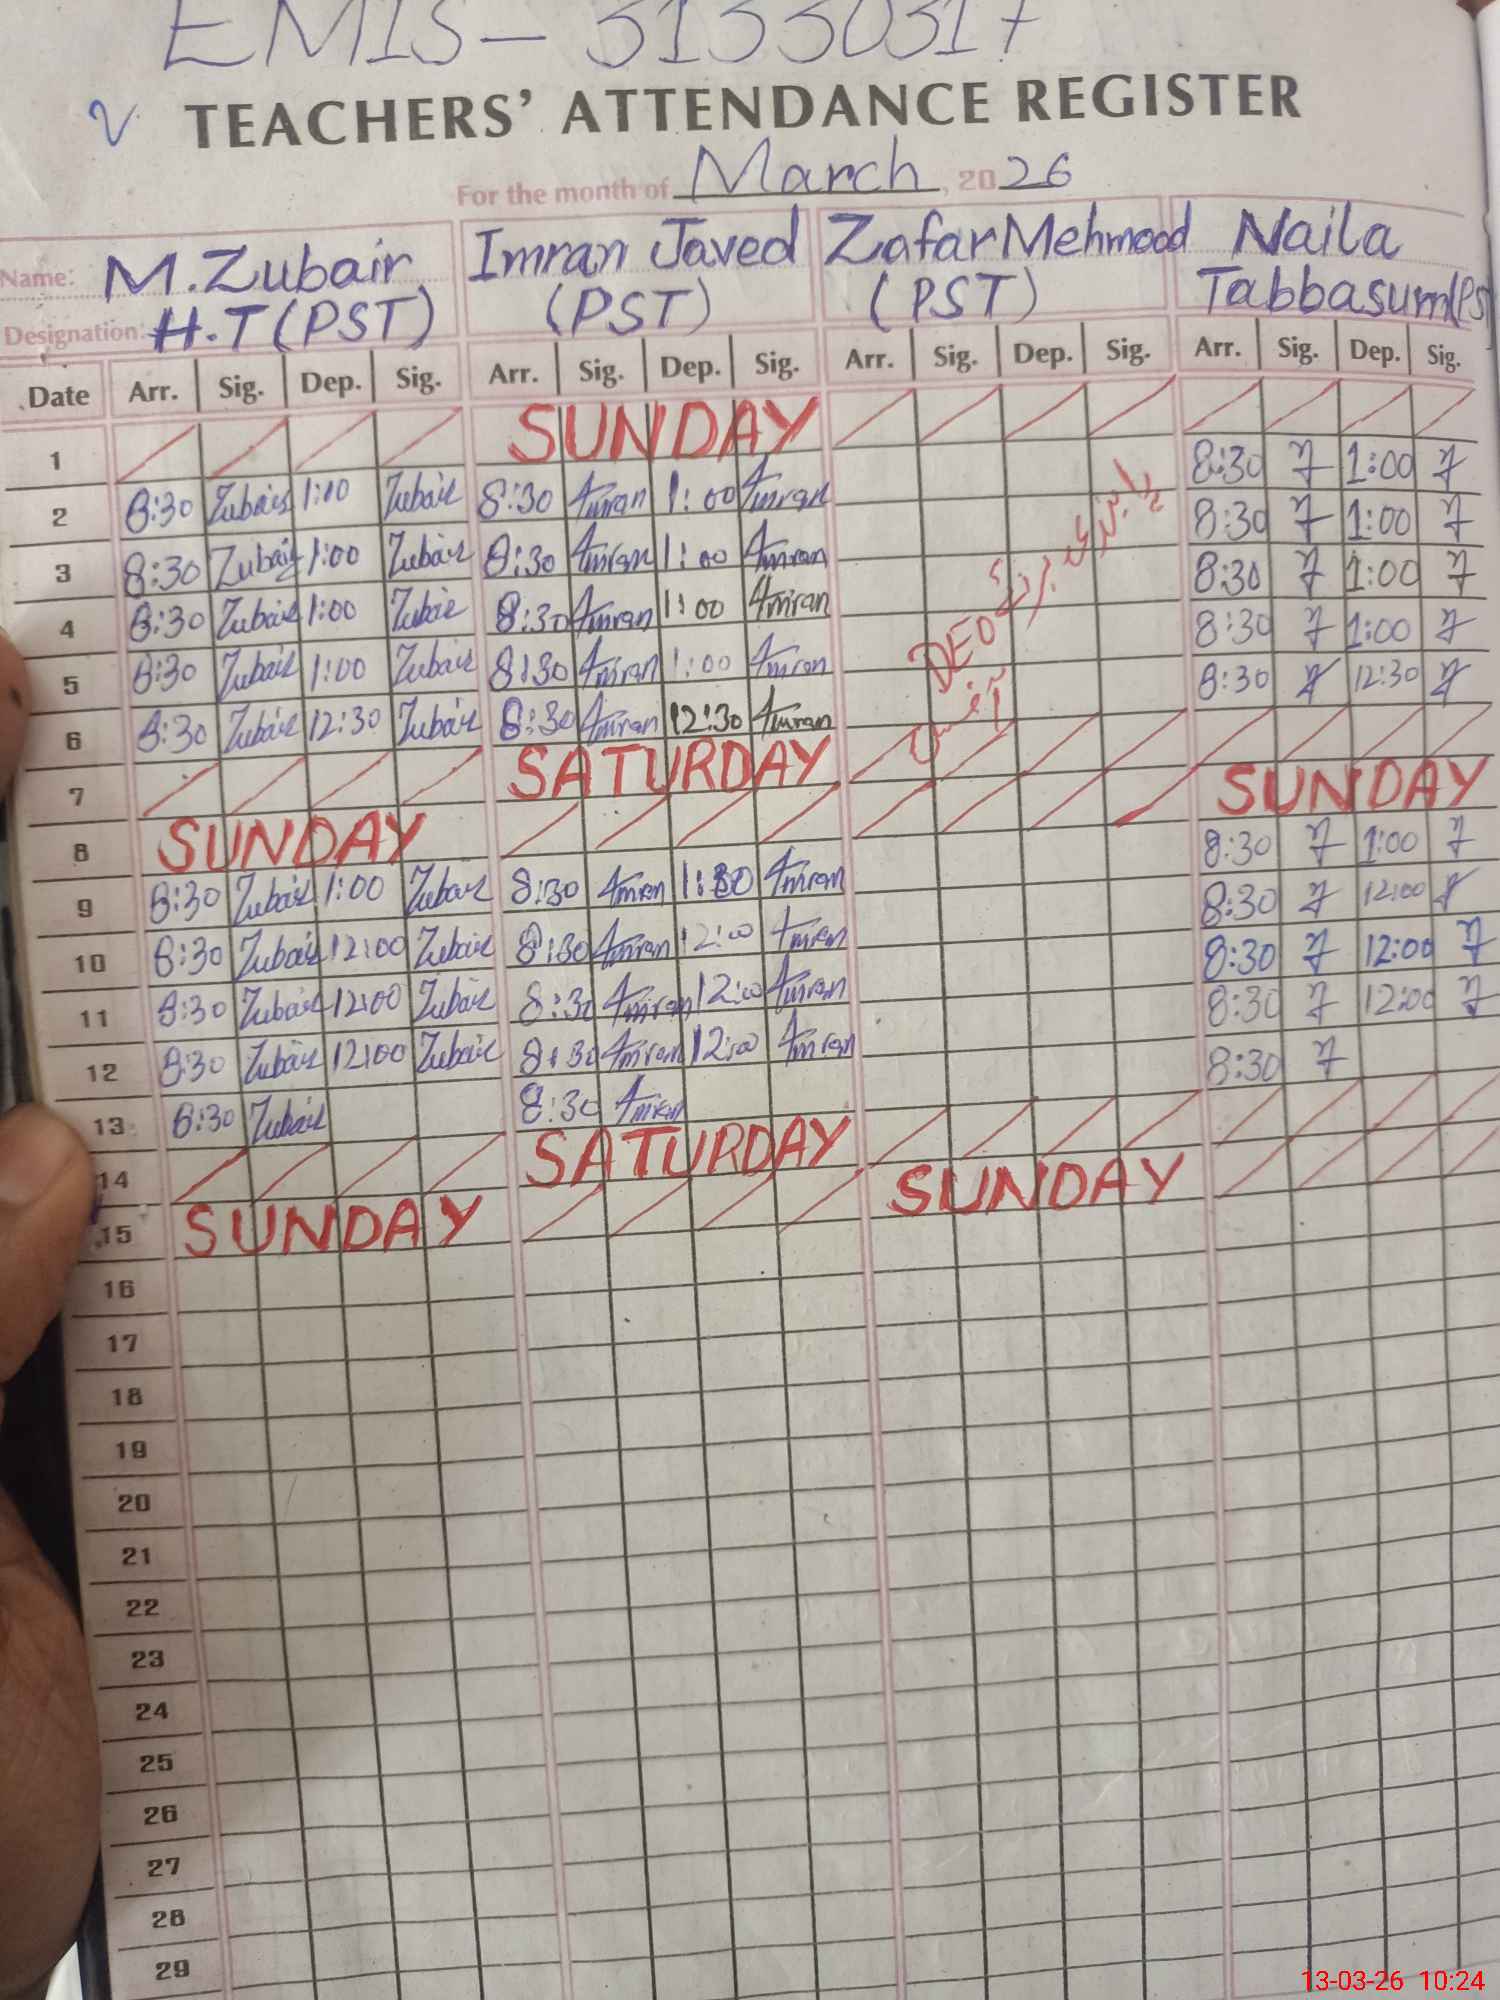 EMIS - 31330317
TEACHERS' ATTENDANCE REGISTER
For the month of March, 2026
Name: M.Zubair Imran Javed Zafar Mehmood Naila
Designation: H.T (PST) (PST) (PST) Tabbasum (PS
Date Arr. Sig. Dep. Sig. Arr. Sig. Dep. Sig. Arr. Sig. Dep. Sig. Arr. Sig. Dep. Sig.
1 SUNDAY
2 8:30 Zubair 1:00 Zubair 8:30 Imran 1:00 Imran 8:30 1:00
3 8:30 Zubair 1:00 Zubair 8:30 Imran 1:00 Imran 8:30 1:00
4 8:30 Zubair 1:00 Zubair 8:30 Imran 1:00 Imran 8:30 1:00
5 8:30 Zubair 1:00 Zubair 8:30 Imran 1:00 Imran DEO 8:30 1:00
6 8:30 Zubair 12:30 Zubair 8:30 Imran 12:30 Imran آفس 8:30 12:30
7 SATURDAY
8 SUNDAY SUNDAY
9 8:30 Zubair 1:00 Zubair 8:30 Imran Imran 8:30 1:00
10 8:30 Zubair 12:00 Zubair 8:30 Imran 12:00 Imran 8:30 12:00
11 8:30 Zubair 12:00 Zubair 8:30 Imran 12:00 Imran 8:30 12:00
12 8:30 Zubair 12:00 Zubair 8:30 Imran 12:00 Imran 8:30 12:00
13 8:30 Zubair 8:30 Imran 8:30
14 SATURDAY
15 SUNDAY SUNDAY
16
17
18
19
20
21
22
23
24
25
26
27
28
29
13-03-26 10:24